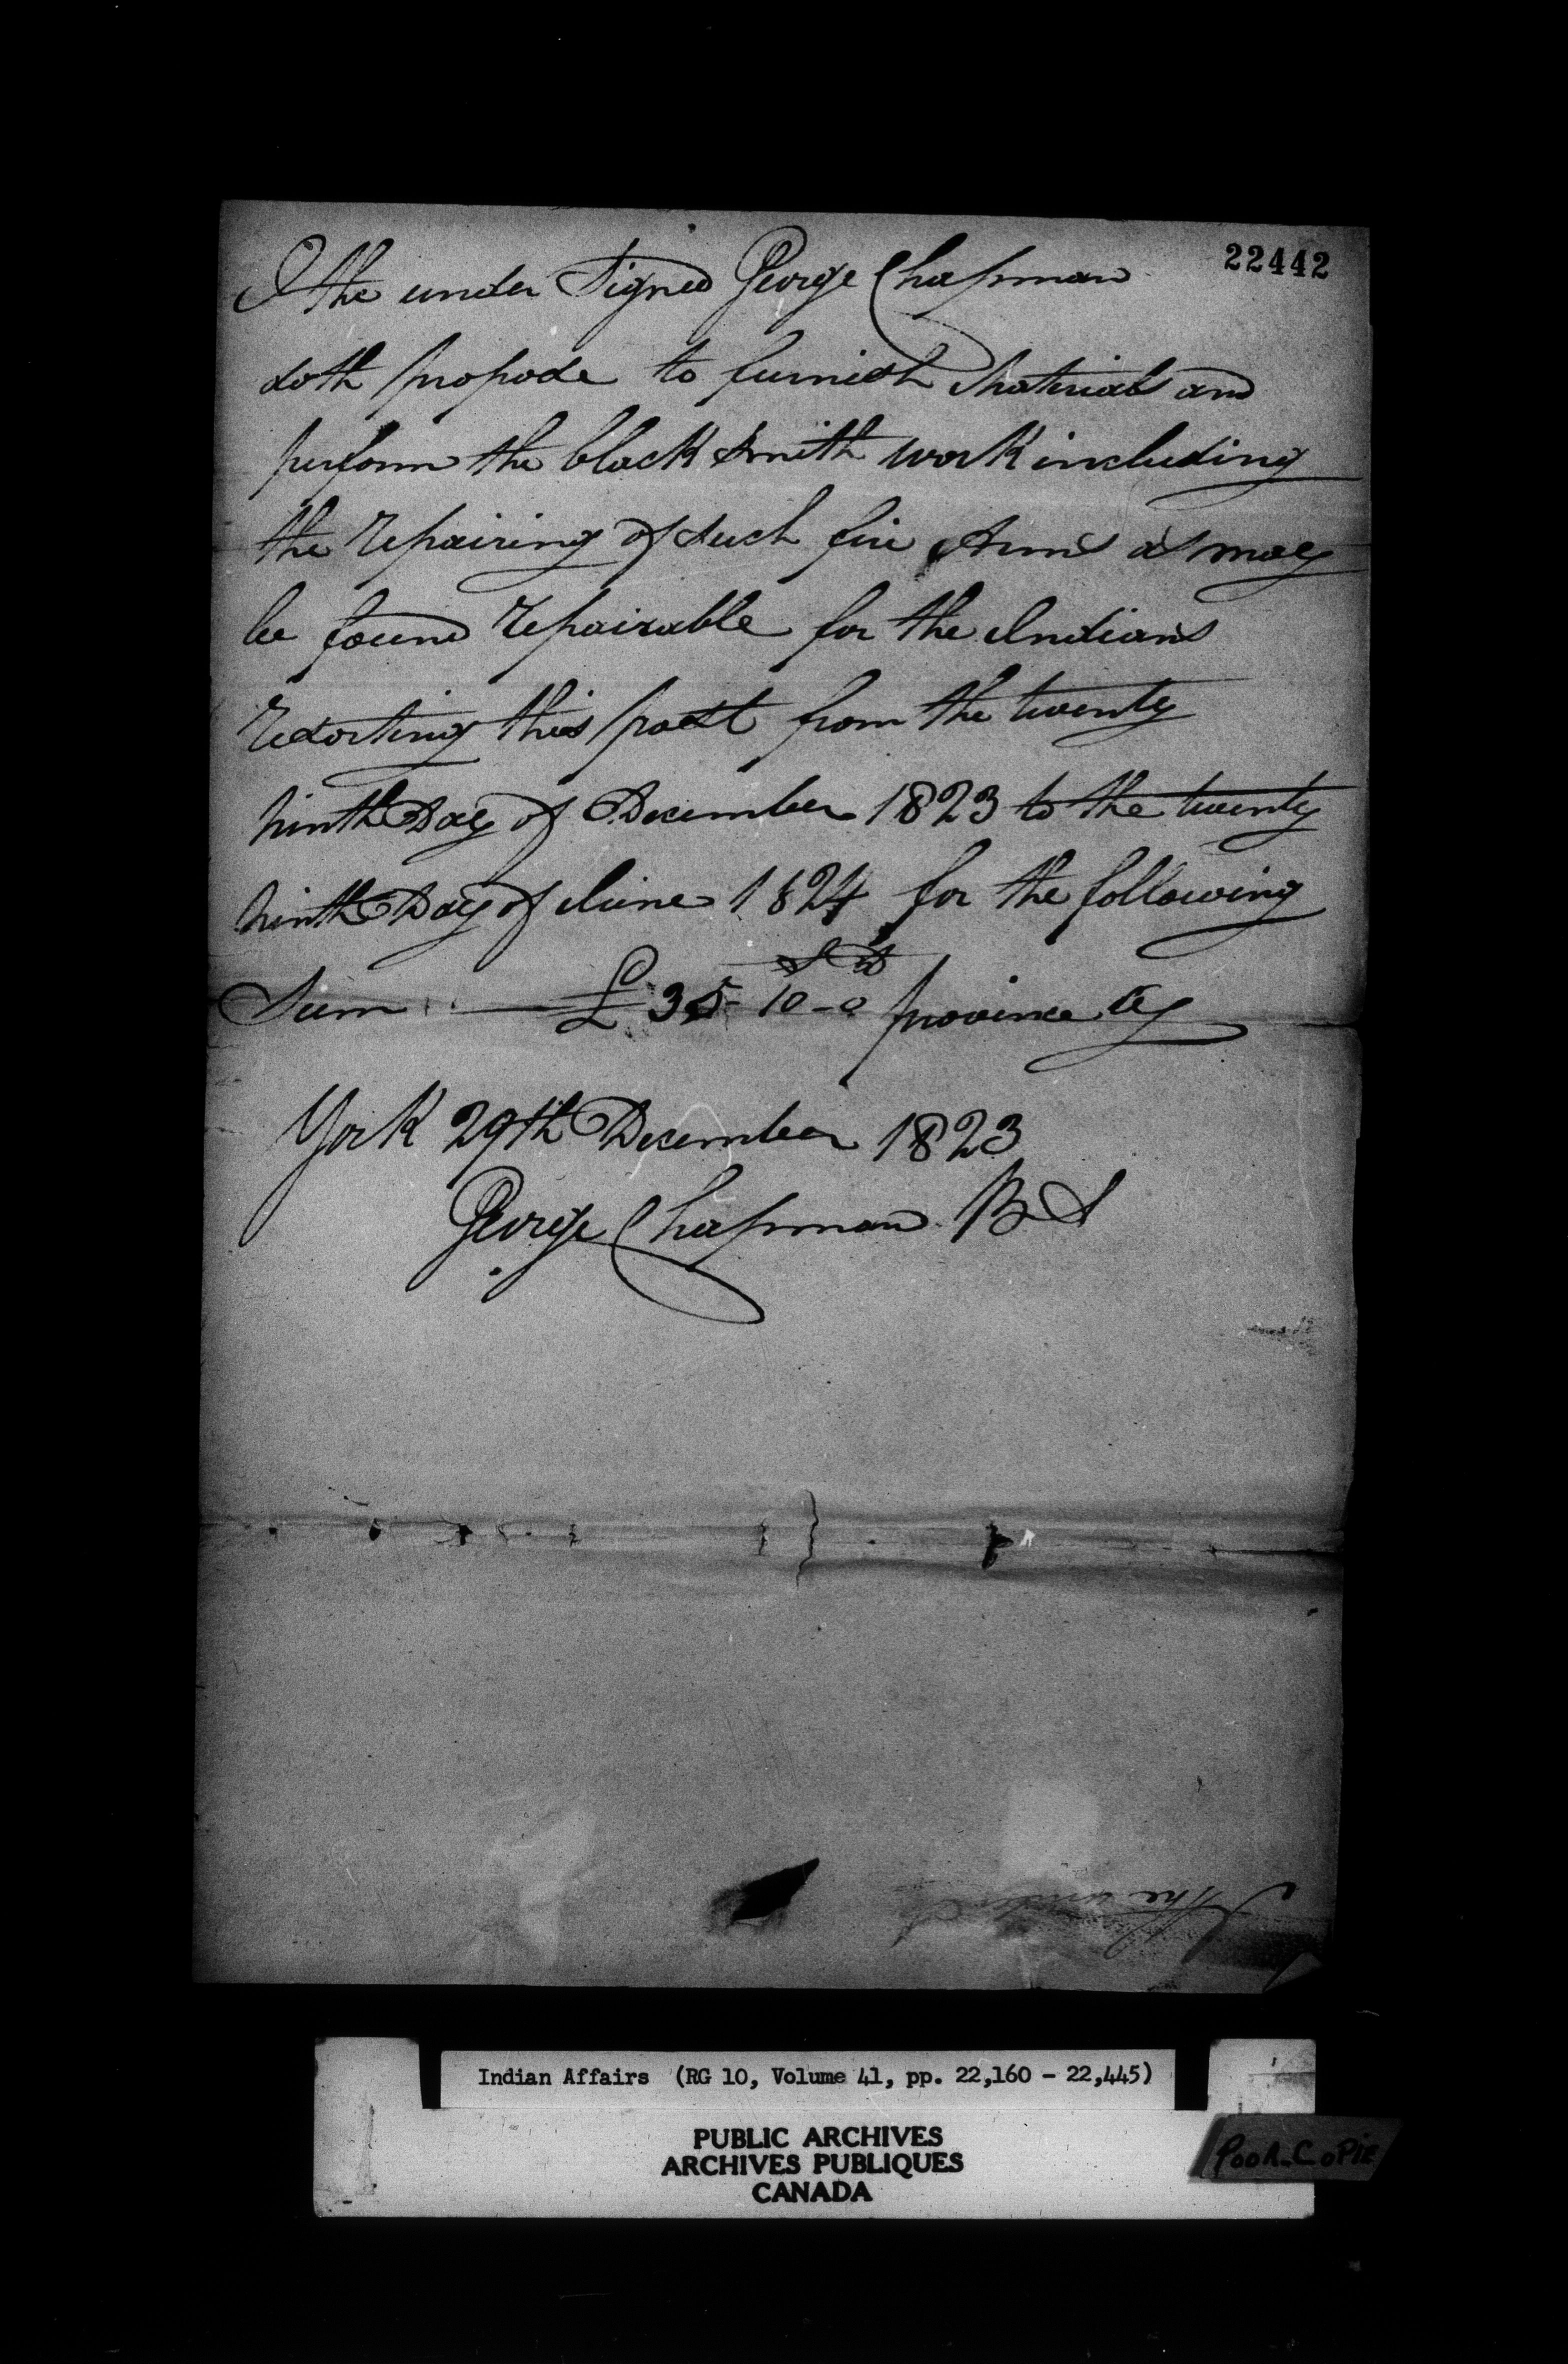 22442
I the under Signed George Chapman
doth propose to furnish Materials and
perform the black Smith work including
the repairing of such fire Arms as may
be found repairable for the Indians
resorting this post from the twenty
ninth Day of December 1823 to the twenty
ninth Day of June 1824 for the following
S D
Sum £ 35 - 10 - 0 province Cy
York 29th December 1823
George Chapman B S
I the under
Indian Affairs (RG 10, Volume 41, pp. 22,160 - 22,445)
PUBLIC ARCHIVES
ARCHIVES PUBLIQUES
CANADA
POOR COPIE